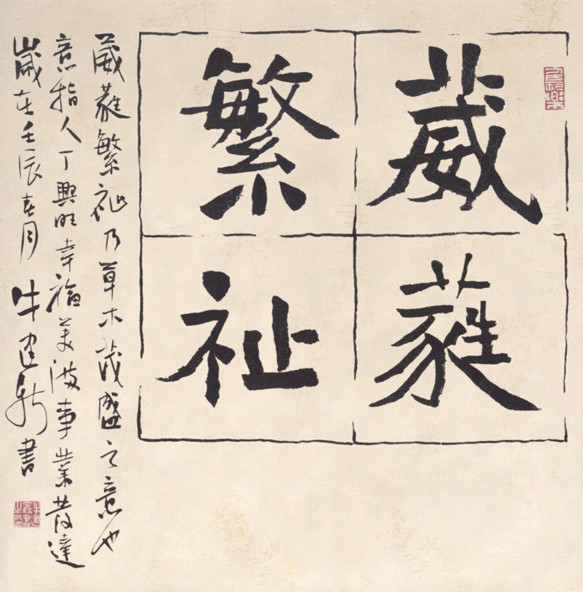 葳蕤
繁祉
葳蕤繁祉乃草木茂盛之意也
意指人丁興旺幸福美滿事業發達
歲在壬辰春月牛建新書